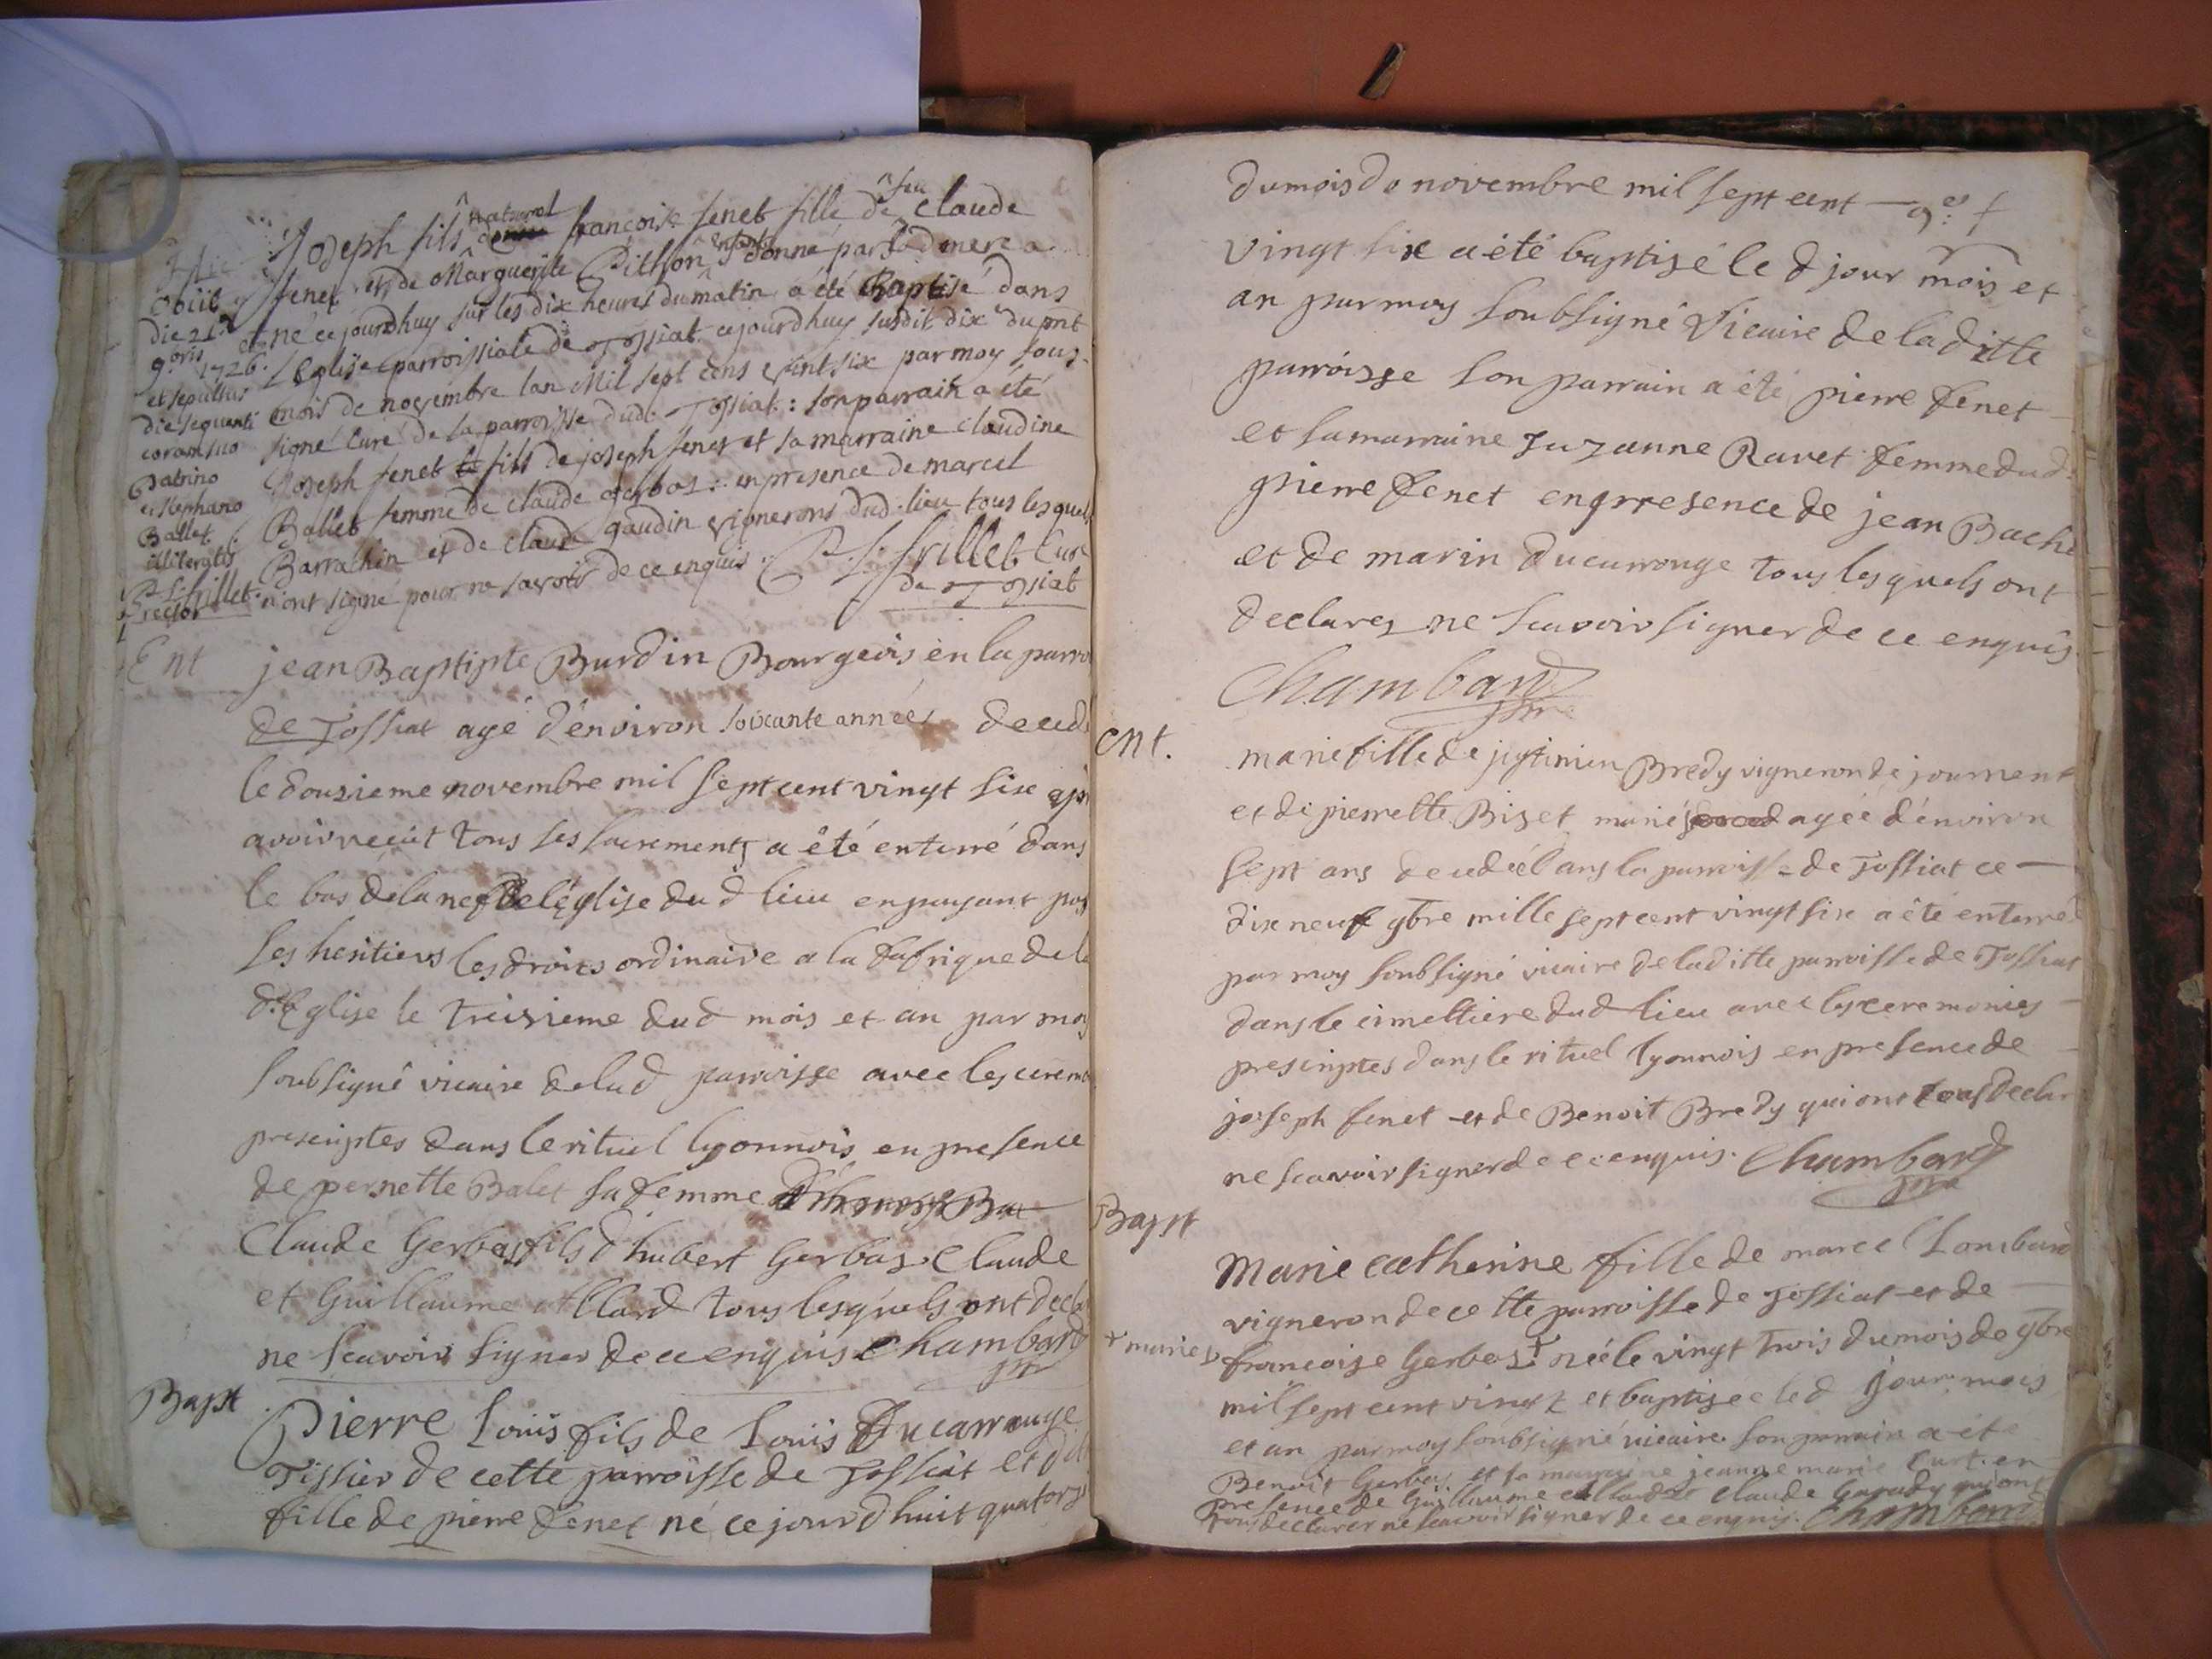 Joseph fils naturel de françoise fenet fille de feu claude
fenet et de Marguerite Pithon enfant donné par lad mere a
et né ce jourdhuy sur les dix heures du matin a été Baptisé dans
L'Eglise parroissiale de Tossiat ce jourdhuy susdit dix du pnt
mois de novembre lan Mil sept cens vint six par moy sous
signé Curé de la parroisse dud. Tossiat : son parrain a été
Joseph fenet fils de joseph fenet et sa marraine claudine
Ballet femme de claude gerbas : en presence de marcel
Barrathin et de claude gaudin vignerons dud. lieu tous lesquels
n'ont signé pour ne savoir de ce enquis. P L frillet Curé
de Tossiat
obiit
die 21
9bris 1726.
et sepultus
die sequenti
coram suo
patrino
et stephano
Ballet
illiteratis
P L frillet
rector
Ent
jean Baptipte Burdin Bourgeois en la parro
de Tossiat agé d'énviron soixante années deced
le dousieme novembre mil sept cent vingt six apr
avoir reçut tous ses sacrements a été enterré dans
le bas de la nef de léglise dud lieu en payant par
ses heritiers les droits ordinaire a la fabrique de la
d. Eglise le treisieme dud mois et an par moy
soubsigné vicaire de lad parroisse avec les ceremo
prescriptes dans le rituel lyonnois en presence
de pernette Balet sa femme
Claude Gerbas fils d'hubert Gerbas Claude
et Guillaume Allard tous lesquels ont decla
ne scavoir signer de ce enquis Chambard
ptre
Bapt
Pierre Louis fils de Louis Ducarrouge
Tissier de cette parroisse de Tossiat et d
fille de pierre fenet né ce jourd'huit quatorz
du mois de novembre mil sept cent
vingt six a été baptisé le d jour mois et
an par moy soubsigné Vicaire de laditte
parroisse son parrain a été pierre fenet
et sa marraine Suzanne Ravet femme dud
pierre fenet en presence de jean Bache
et de marin ducarrouge tous lesquels ont
declarez ne scavoir signer de ce enquis
Chambard
ptre
Ent.
marie fille de justinien Bredy vigneron de journent
et de pierrette Bizet mariés agée d'énviron
sept ans decedeé dans la parroisse de Tossiat ce
dix neuf 9bre mille sept cent vingt six a été enterreé
par moy soubsigné vicaire de laditte parroisse de Tossiat
dans le cimettiere dud lieu avec les ceremonies
prescriptes dans le rituel lyonnois en presence de
joseph fenet et de Benoit Bredy qui ont tous declar
ne scavoir signer de ce enquis. Chambard
ptre
Bapt
Marie catherine fille de marcel Lombard
vigneron de cette parroisse de Tossiat et de
+ mariés
francoise Gerbas + neé le vingt trois du mois de 9bre
mil sept cent vingt et baptisee led jour mois
et an par moy soubsigné vicaire son parrain a été
Benoit Gerbas et sa marraine jeanne marie Curt en
presence de Guillaume Allard et Claude qui ont
tous declarer ne scavoir signer de ce enquis. Chambard